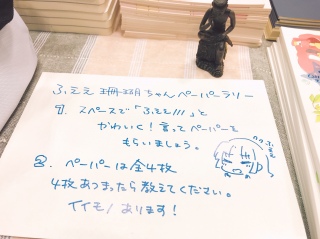 ふええ珊瑚ちゃんペーパーラリー
1. スペースで「ふええ///」と
かわいく!言ってペーパーを
もらいましょう。
2. ペーパーは全4枚
4枚あつまったら教えてください。
イイモノあります!
ふええ